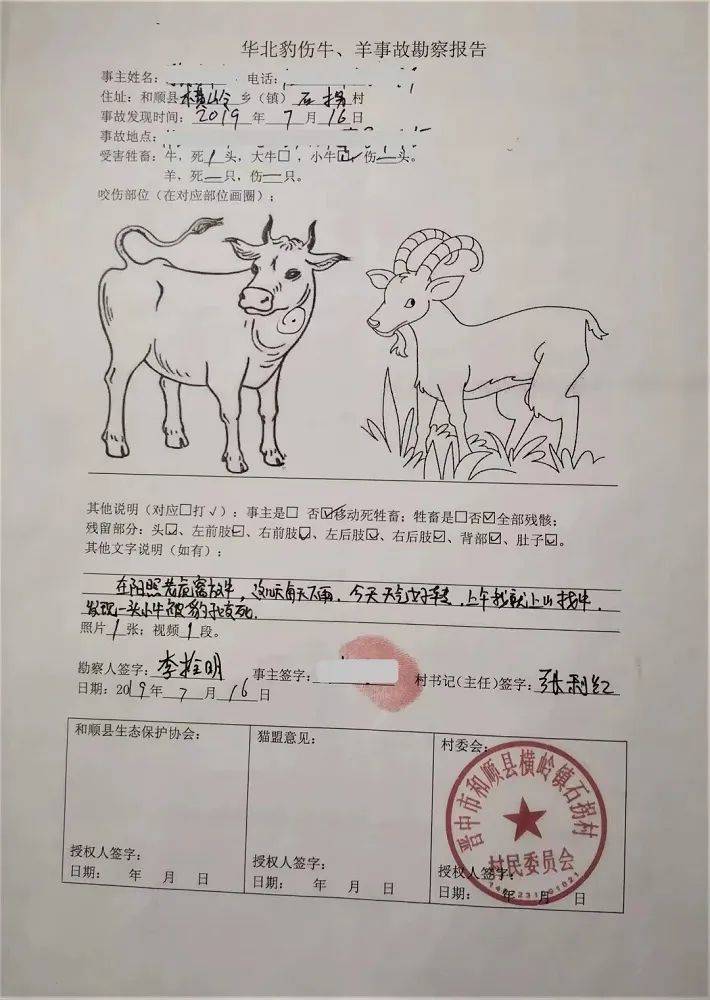 华北豹伤牛、羊事故勘察报告
事主姓名: 电话:
住址: 和顺县横岭乡（镇）石拐村
事故发现时间: 2019年7月16日
事故地点:
受害牲畜: 牛, 死1头, 大牛□, 小牛☑, 伤—头。
羊, 死—只, 伤—只。
咬伤部位（在对应部位画圈）;
其他说明（对应□打√）: 事主是□ 否☑移动死牲畜; 牲畜是□否☑全部残骸;
残留部分: 头☑、左前肢☑、右前肢☑、左后肢☑、右后肢☑、背部☑、肚子☑。
其他文字说明（如有）;
在阳照 放牛, 这几天每天下雨, 今天天气好转, 上午我就上山找牛,
发现一头小牛被豹子咬死.
照片1张; 视频1段。
勘察人签字: 李拴明 事主签字: 村书记(主任)签字: 张利红
日期: 2019年7月16日
和顺县生态保护协会: 猫盟意见: 村委会:
晋中市和顺县横岭镇石拐村
村民委员会
授权人签字: 授权人签字: 授权人签字:
日期: 年 月 日 日期: 年 月 日 日期: 年 月 日